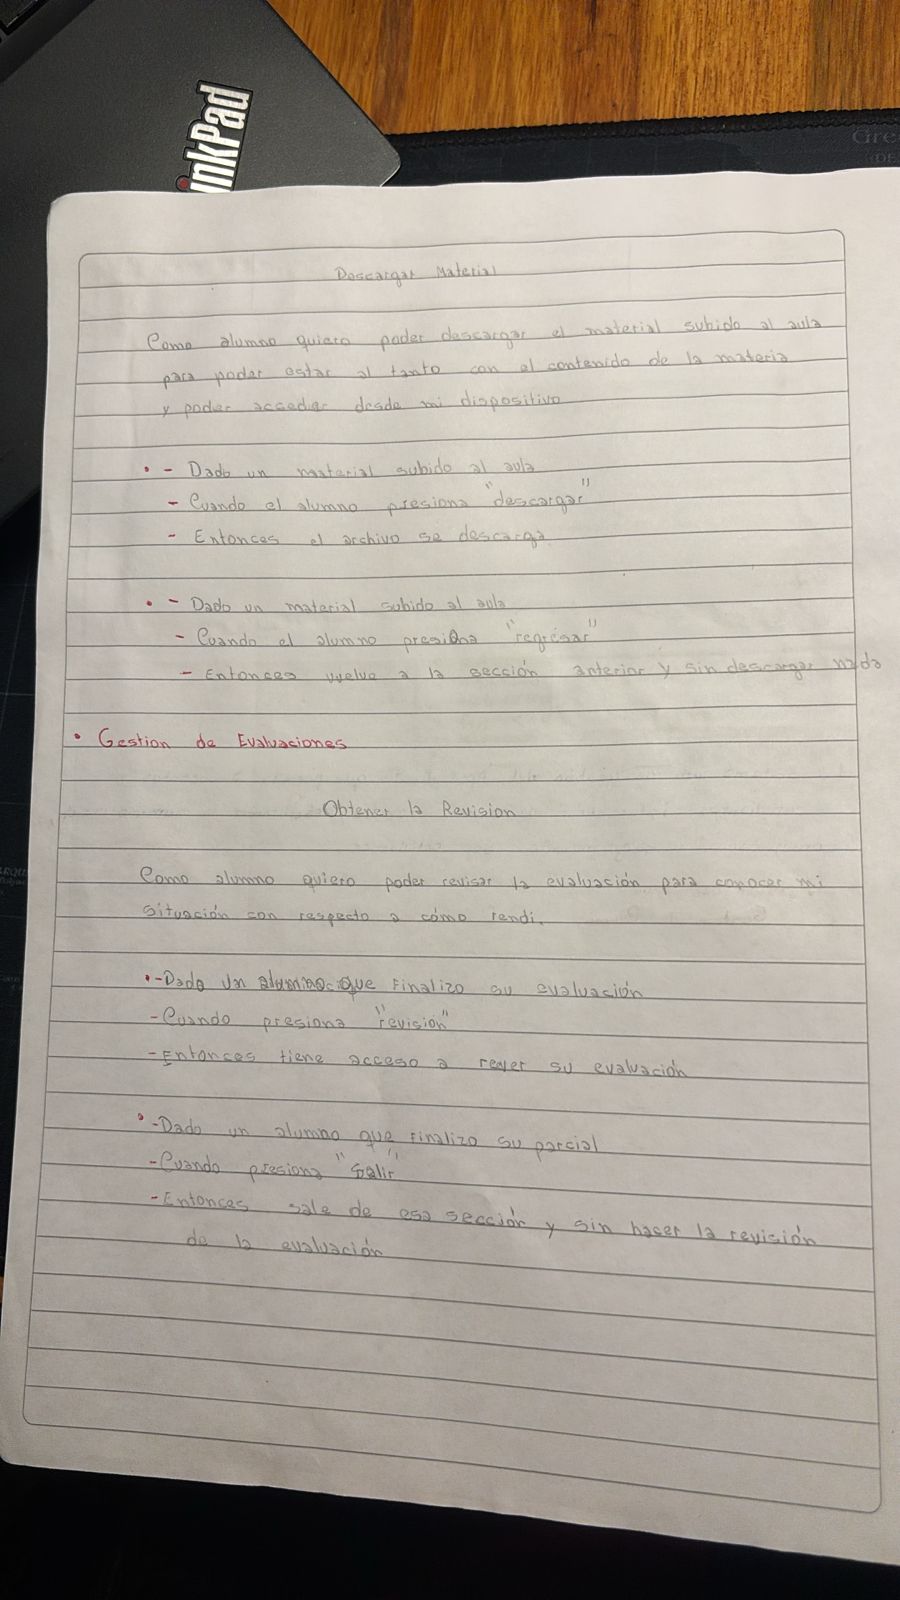 inkPad
Gre
Descargar Material
Como alumno quiero poder descargar el material subido al aula
para poder estar al tanto con el contenido de la materia
y poder acceder desde mi dispositivo
• - Dado un material subido al aula
- Cuando el alumno presiona "descargar"
- Entonces el archivo se descarga
• - Dado un material subido al aula
- Cuando el alumno presiona "regresar"
- Entonces vuelve a la sección anterior y sin descargar nada
• Gestion de Evaluaciones
Obtener la Revision
Como alumno quiero poder revisar la evaluación para conocer mi
situación con respecto a cómo rendi.
• - Dado un alumno que finalizo su evaluación
- Cuando presiona "revisión"
- Entonces tiene acceso a reveer su evaluación
• - Dado un alumno que finalizo su parcial
- Cuando presiona "Salir"
- Entonces sale de esa sección y sin hacer la revisión
de la evaluación